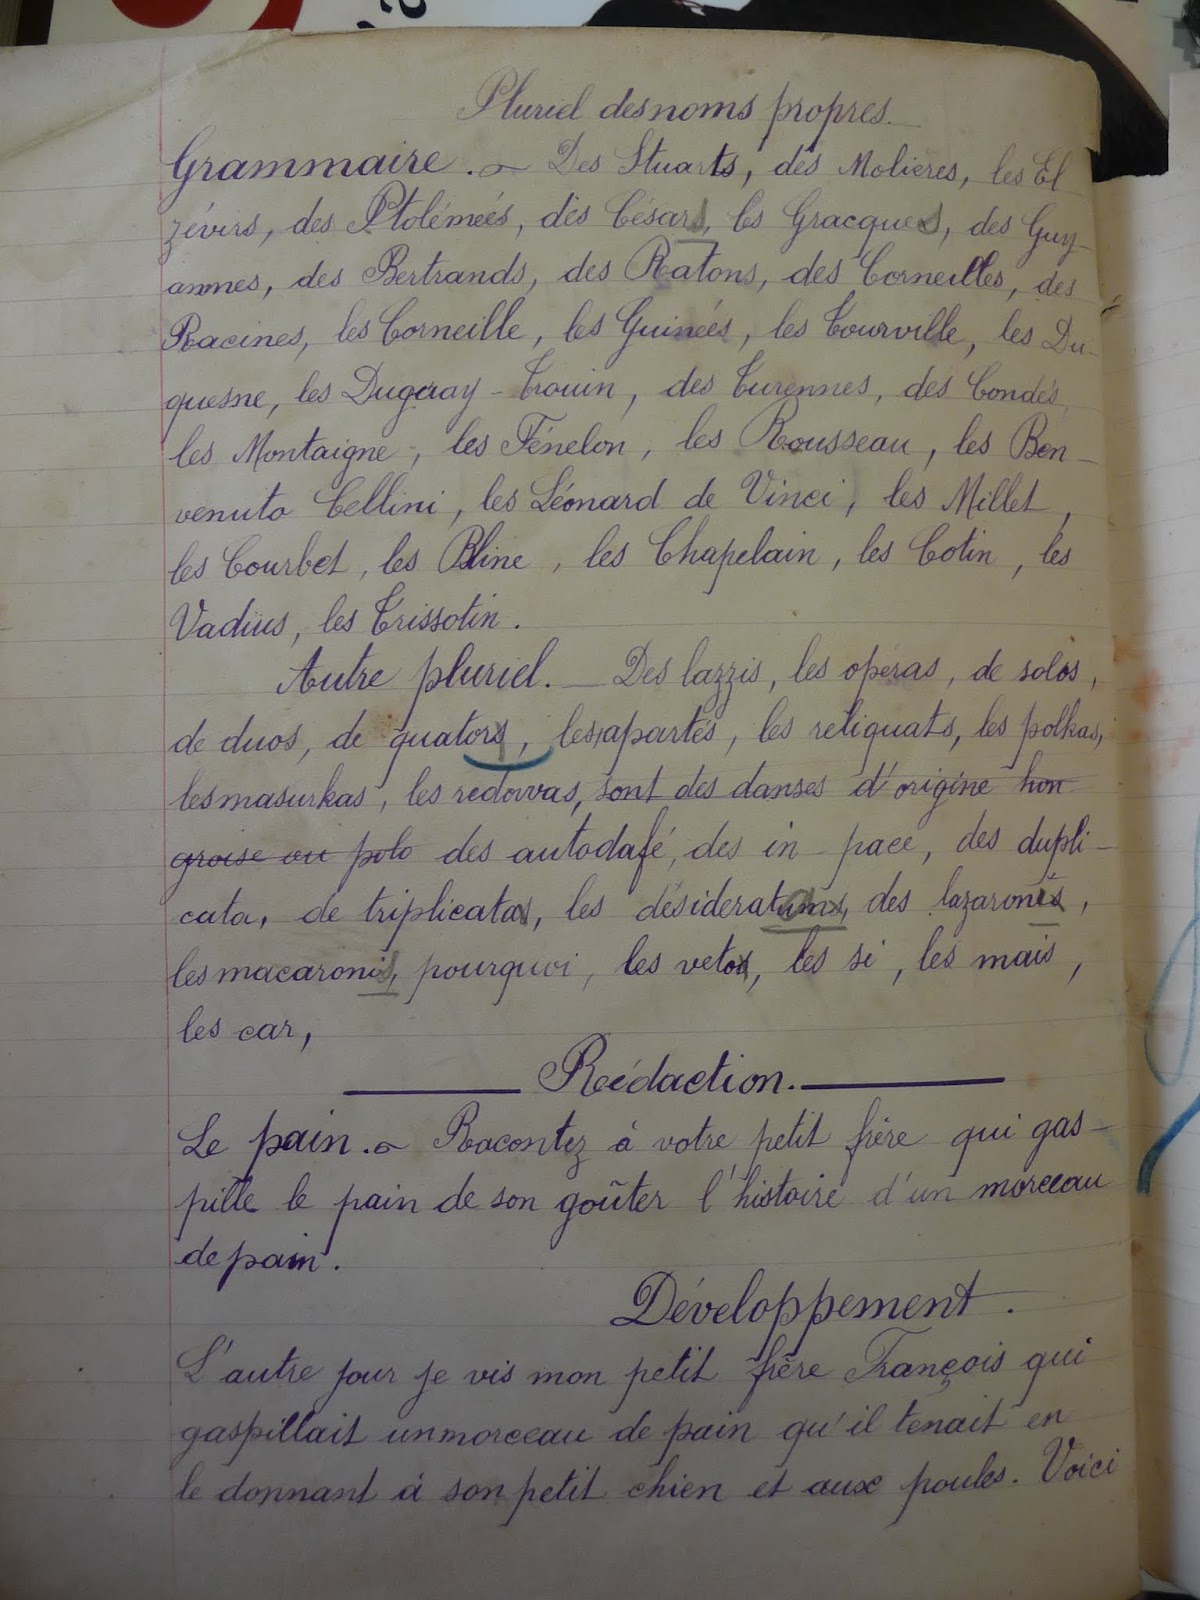 Pluriel des noms propres.
Grammaire. — Des Stuarts, des Molières, les El
zévirs, des Ptolémées, des Césars, les Gracques, des Guy-
annes, des Bertrands, des Ratons, des Corneilles, des
Racines, les Corneille, les Guinées, les Tourville, les Du-
quesne, les Duguay-Trouin, des Turennes, des Condés,
les Montaigne, les Fénelon, les Rousseau, les Ben-
venuto Cellini, les Léonard de Vinci, les Millet,
les Courbet, les Pline, les Chapelain, les Cotin, les
Vadius, les Trissotin.
Autre pluriel. — Des lazzis, les opéras, de solos,
de duos, de quators, les apartés, les reliquats, les polkas,
les masurkas, les redowas, sont des danses d'origine hon
groise ou polo des autodafé, des in-pace, des dupli-
cata, de triplicatas, les désideratums, des lazaronis,
les macaronis, pourquoi, les vetos, les si, les mais,
les car,
Rédaction.
Le pain. — Racontez à votre petit frère qui gas-
pille le pain de son goûter l'histoire d'un morceau
de pain.
Développement.
L'autre jour je vis mon petit frère François qui
gaspillait un morceau de pain qu'il tenait en
le donnant à son petit chien et aux poules. Voici